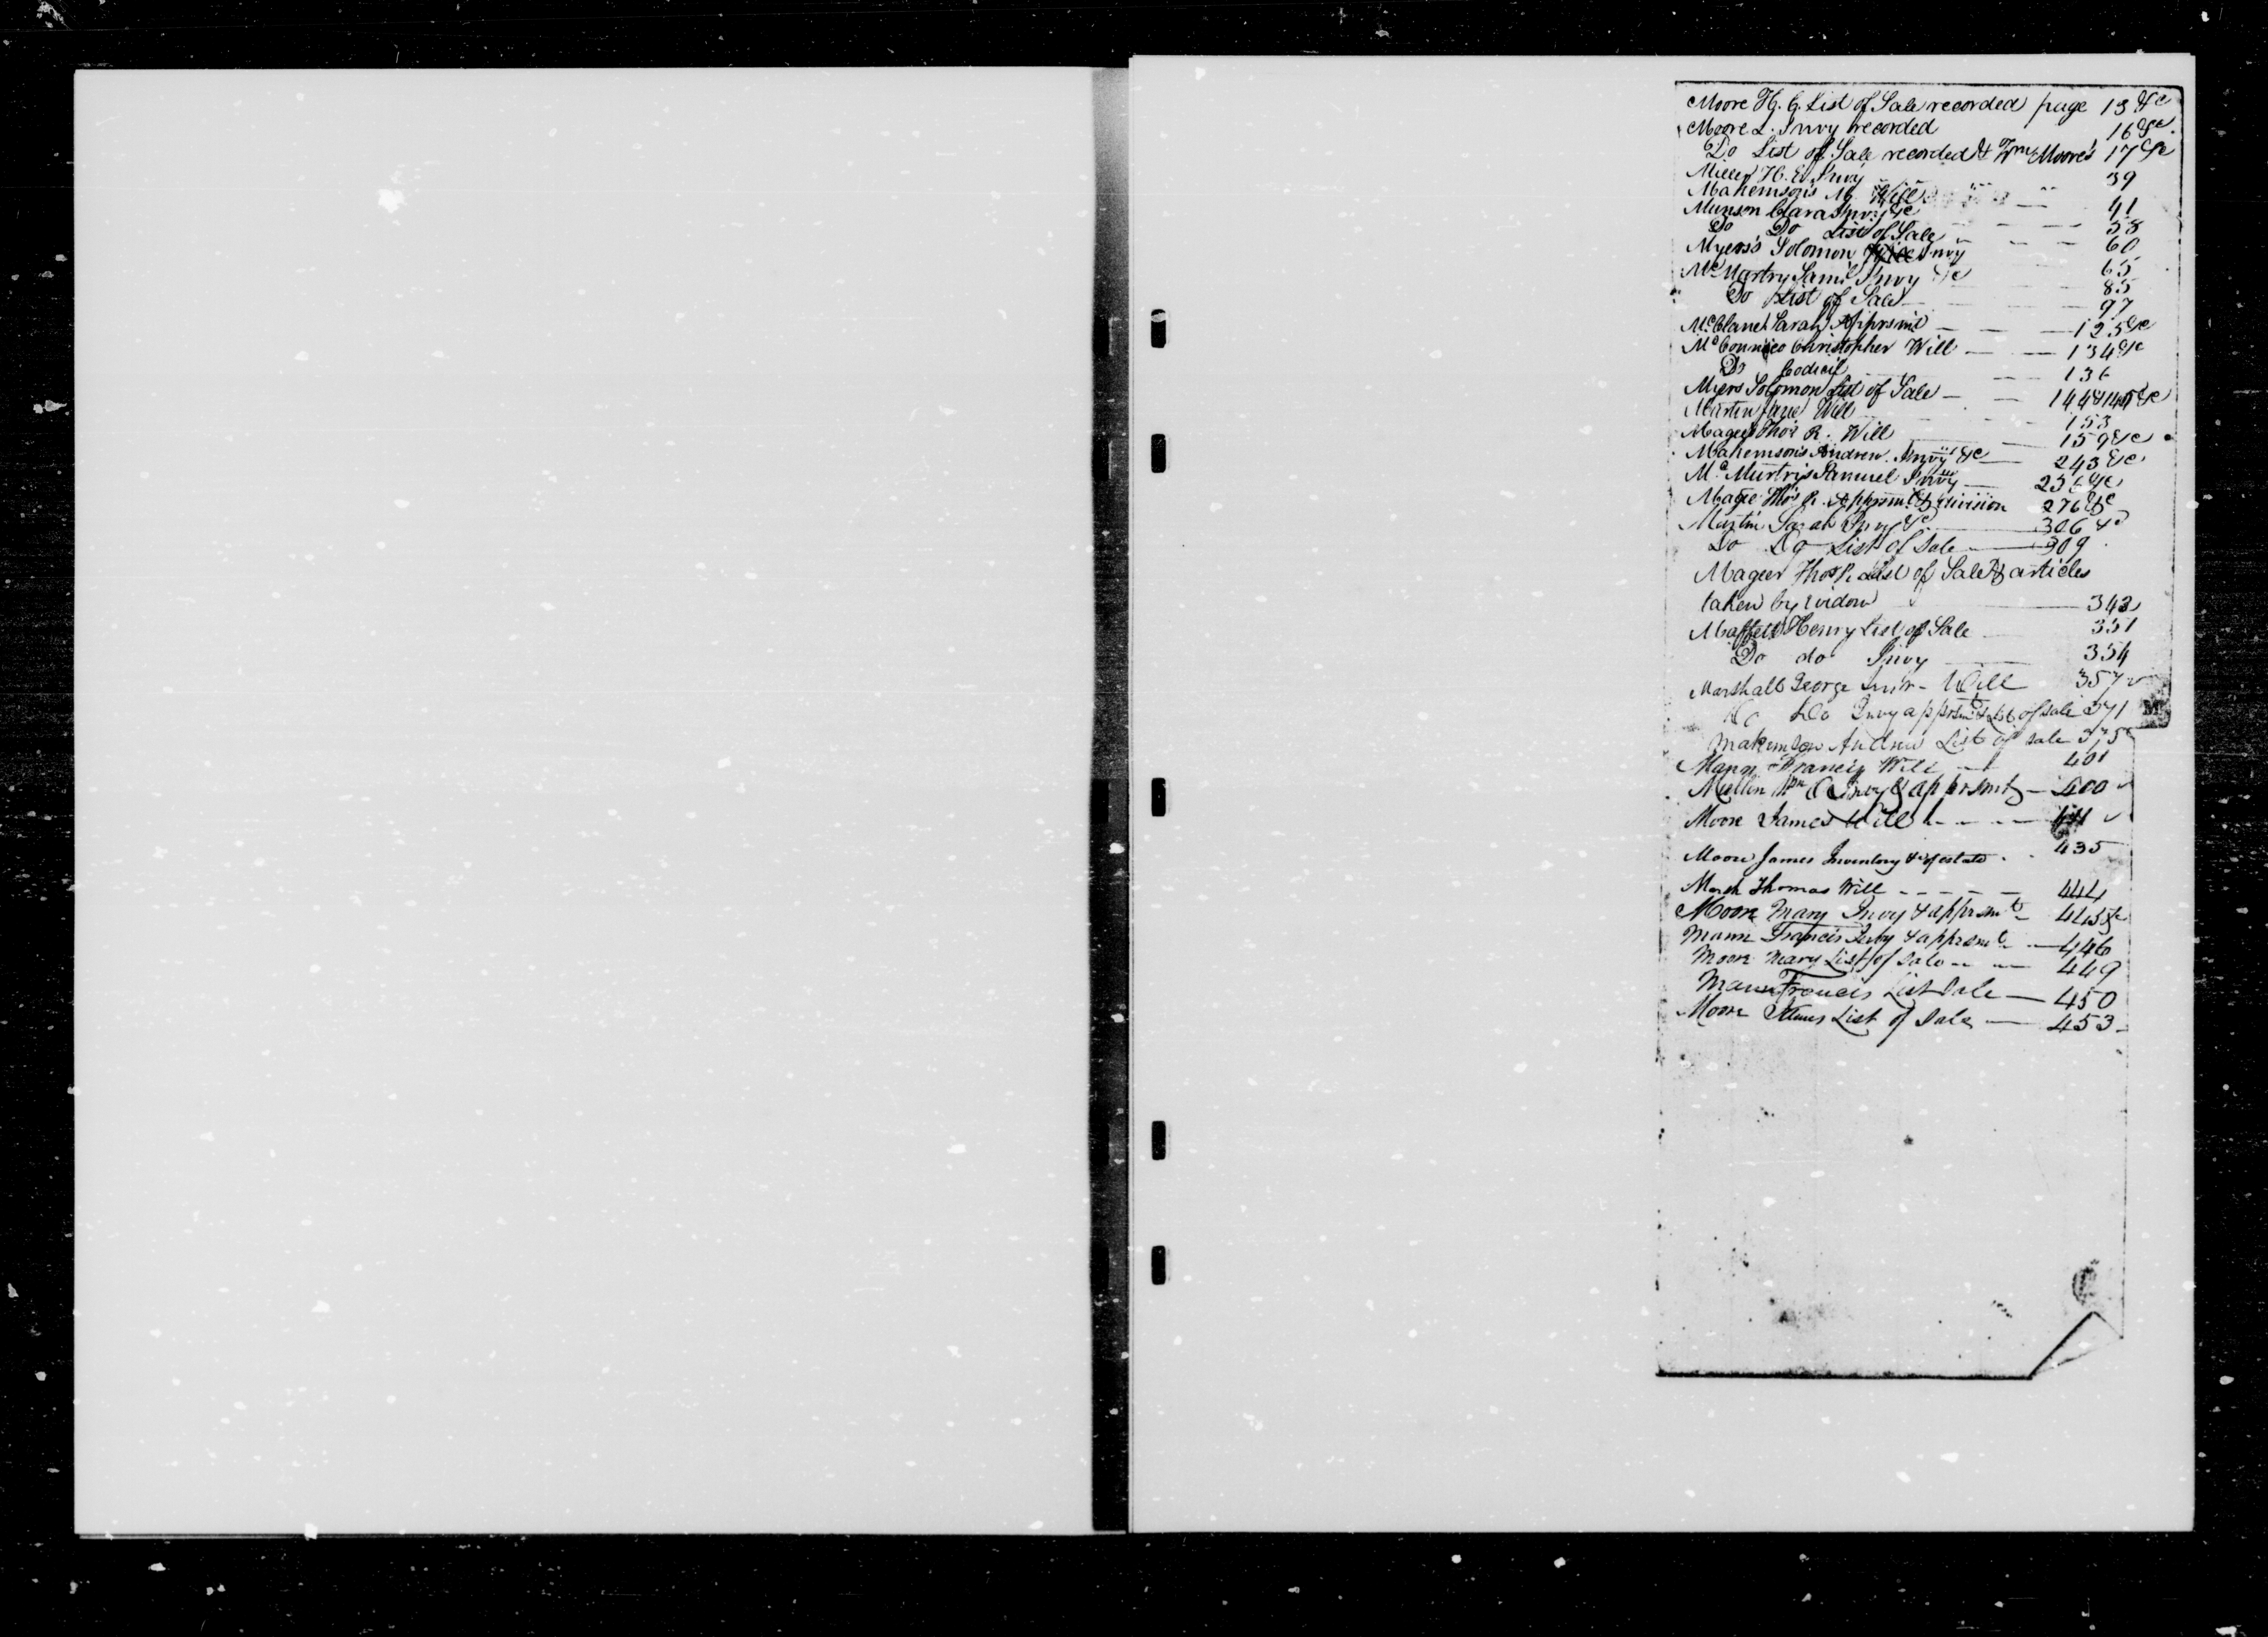 Moore H. G. List of Sale recorded page 13 &c
Moore L. Invy recorded 16 &c
Do List of Sale recorded & Wm Moore's 17 &c
Miller H. E. Invy 39
Makemson's Will 41
Munson Clara Invy &c 58
Do Do List of Sale 60
Myers's Solomon Invy 65
McMurtry Saml Invy &c 85
Do List of Sale 97
Sarah Apprsmt 125 &c
McConnico Christopher Will 134 &c
Do Codicil 136
Myers Solomon List of Sale 144 & 145 &c
Martin Jane Will 153
Magee Thos R. Will 159 &c
Makemson's Andrew Invy &c 243 &c
McMurtry's Samuel Invy 256 &c
Magee Thos R. Apprsmt & division 276 &c
Martin Sarah Invy &c 306 &c
Do Do List of Sale 309
Mageer Thos R. List of Sale & articles
taken by widow 342
Maffett Henry List of Sale 351
Do do Invy 354
Marshall George Will 357
Do Do Invy apprsmt & List of sale 371
Makemson Andrew List of sale 375
M
Mann Francis Will 401
Mullin Wm C Invy & apprsmt 400
Moore James Will 411
Moore James Inventory &c of estate 435
Marsh Thomas Will 444
Moore Mary Invy & apprsmt 445 &c
Mann Francis Invy & apprsmt 446
Moore Mary List of Sale 449
Mann Francis List Sale 450
Moore James List of Sale 453